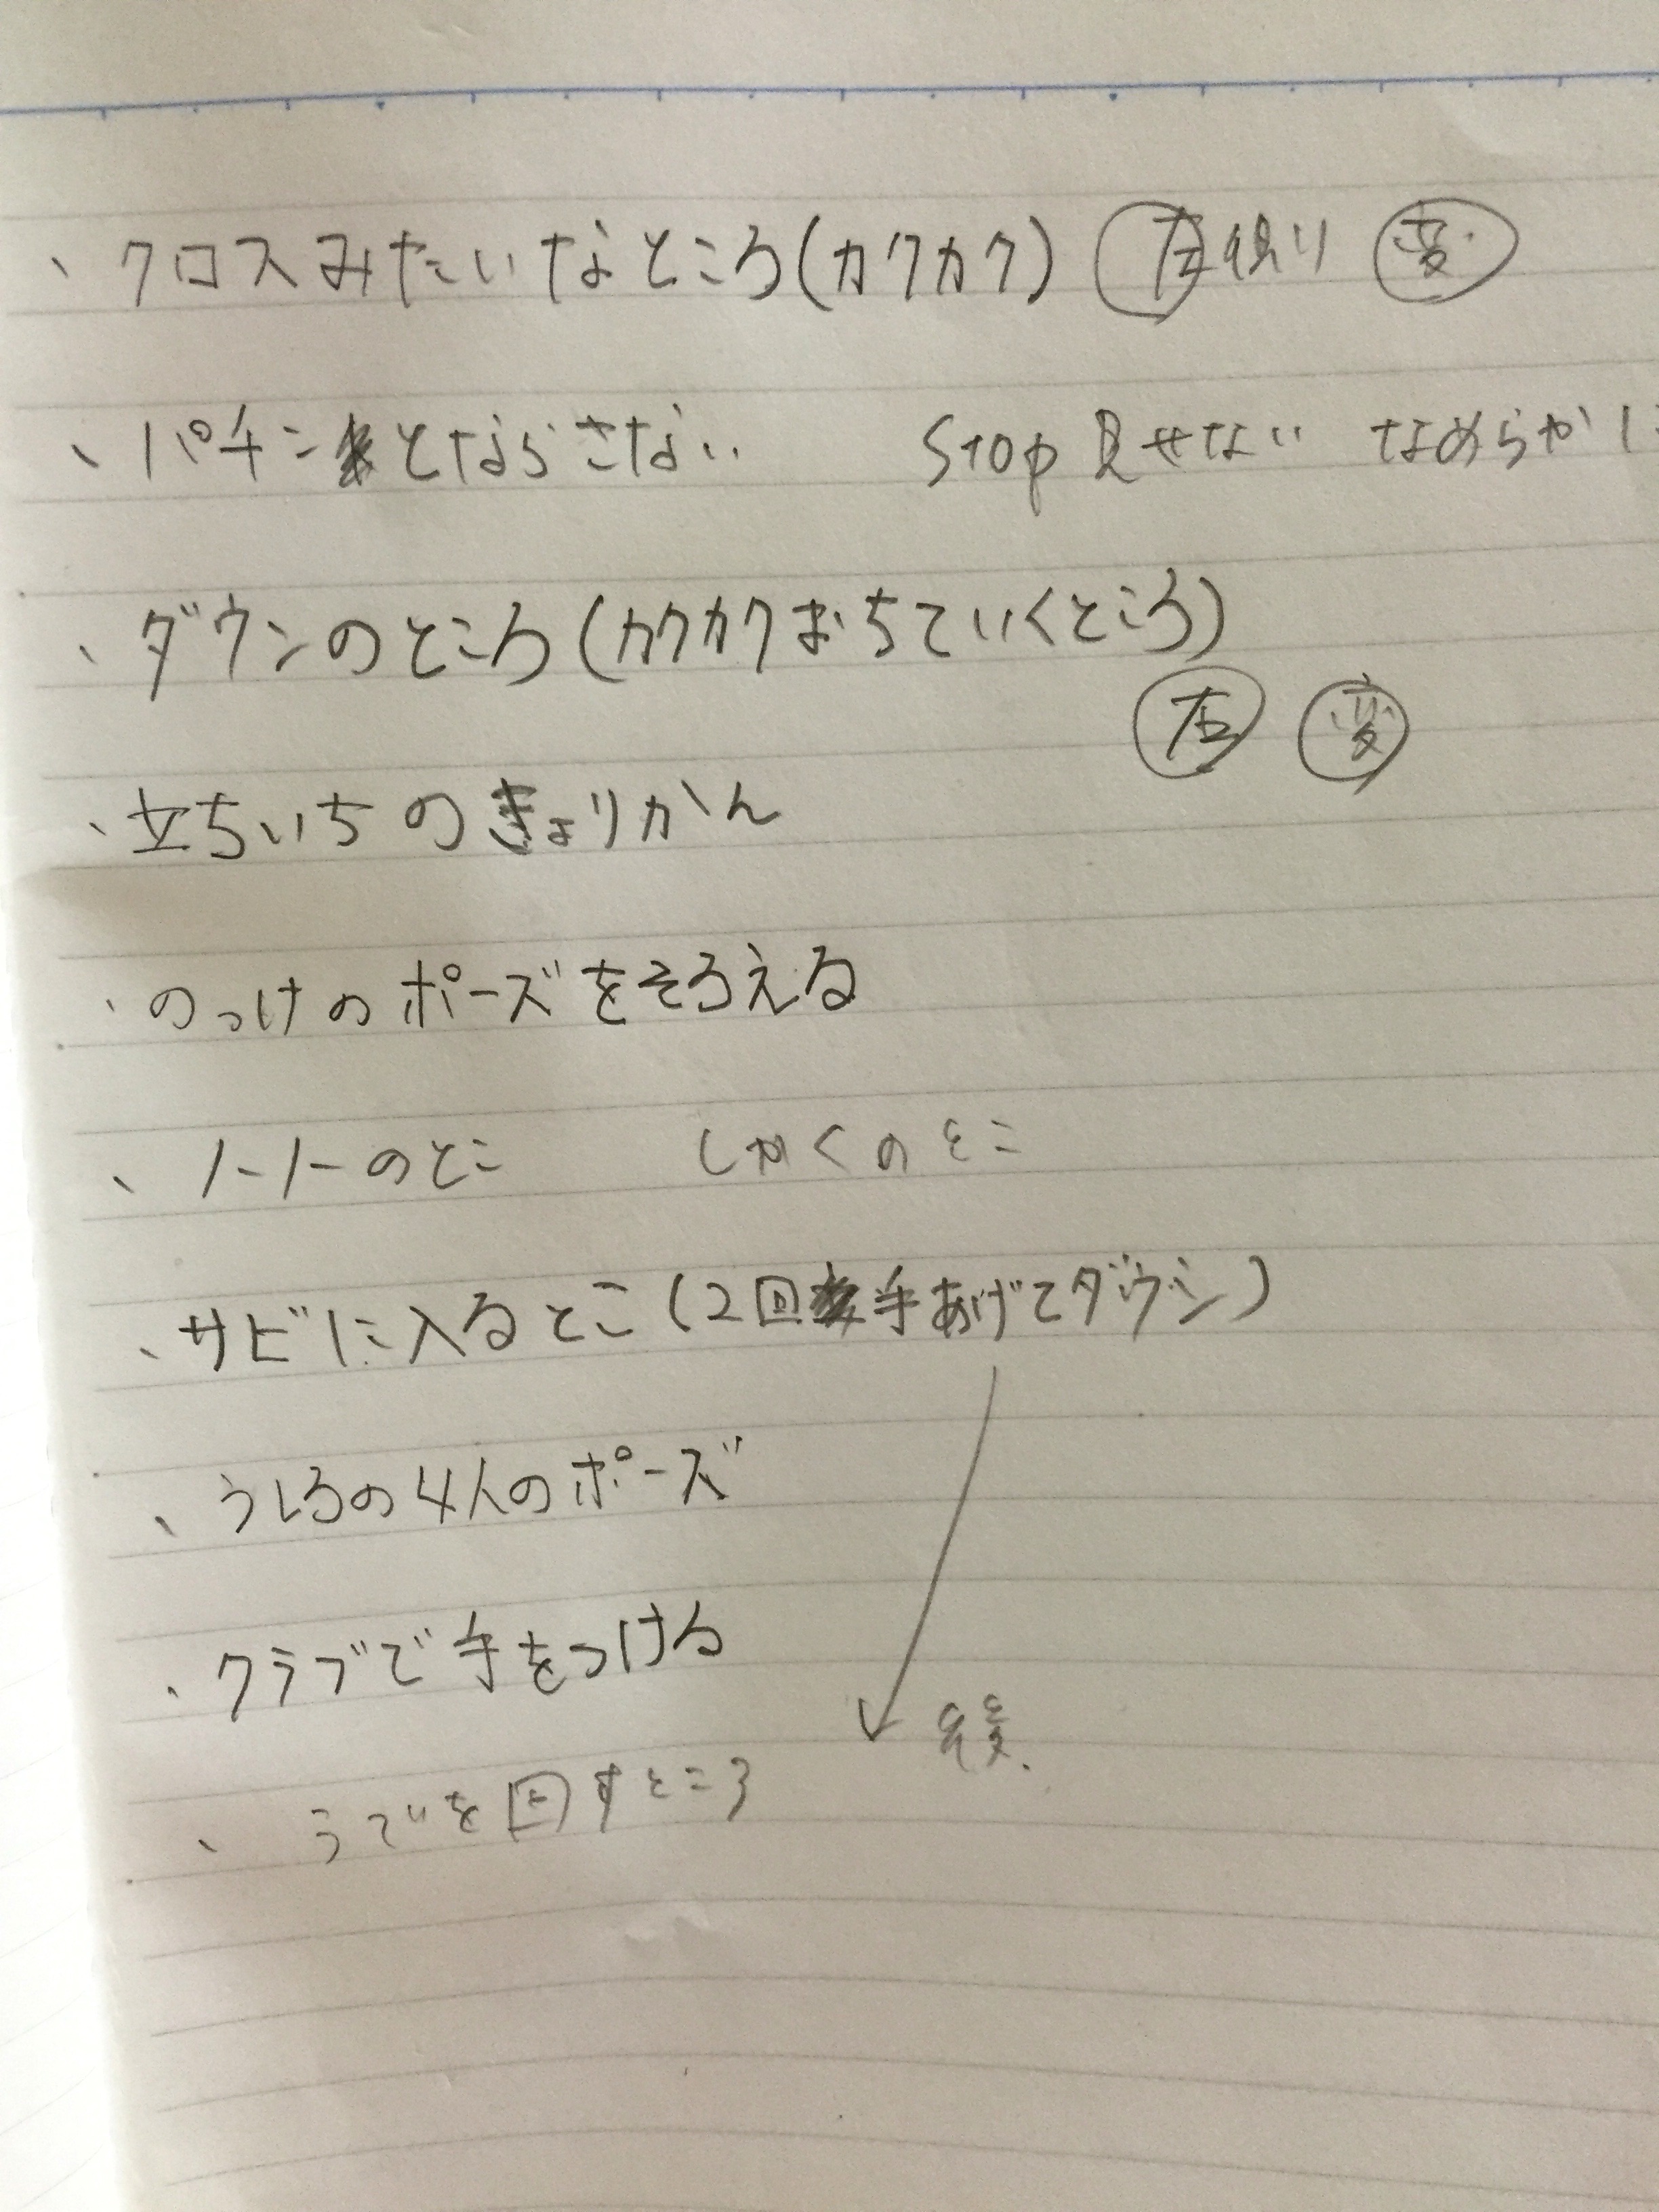 、クロスみたいなところ(カクカク) 左 変
、パチンとならさない Stop 見せない なめらかに
、ダウンのところ(カクカクおちていくところ)
左 変
、立ちいちのきょりかん
、のっけのポーズをそろえる
、ノーノーのとこ しゃくのとこ
、サビに入るとこ(2回手あげてダウン)
、うしろの4人のポーズ
、クラブで手をつける
後
、うでを回すところ